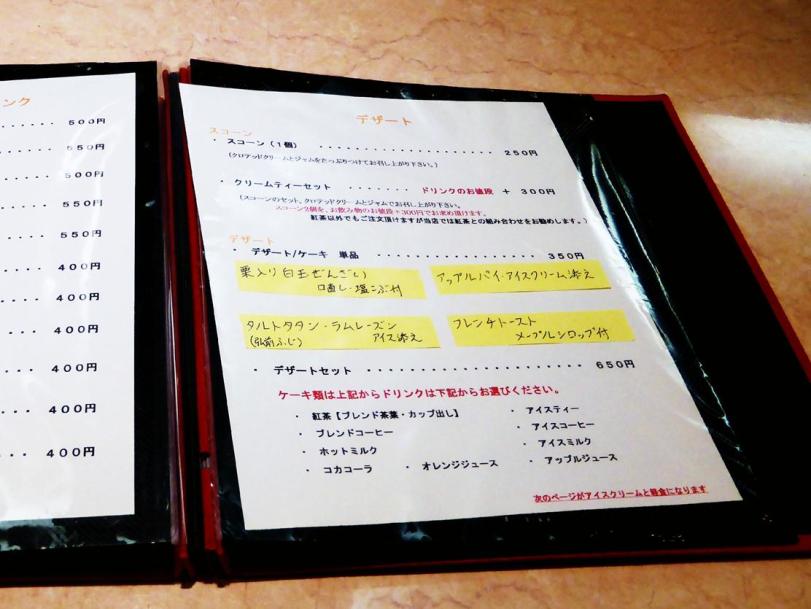 ンク
500円
550円
500円
550円
550円
400円
400円
400円
400円
400円
400円
デザート
スコーン
・ スコーン（1個） ・・・・・・・・・・・・・・・・・ 250円
（クロテッドクリームとジャムをたっぷりつけてお召し上がり下さい。）
・ クリームティーセット ・・・・・・・ ドリンクのお値段 ＋ 300円
（スコーンのセット、クロテッドクリームとジャムでお召し上がり下さい。
スコーン2個を、お飲み物のお値段＋300円でお求め頂けます。
紅茶以外でもご注文頂けますが当店では紅茶との組み合わせをお勧めします。）
デザート
・ デザート/ケーキ 単品 ・・・・・・・・・・・・・・・・ 350円
栗入り白玉ぜんざい
口直し・塩こぶ付
アップルパイ・アイスクリーム添え
タルトタタン・ラムレーズン
（弘前ふじ） アイス添え
フレンチトースト
メープルシロップ付
・ デザートセット ・・・・・・・・・・・・・・・・・・・ 650円
ケーキ類は上記からドリンクは下記からお選びください。
・ 紅茶【ブレンド茶葉・カップ出し】 ・ アイスティー
・ ブレンドコーヒー ・ アイスコーヒー
・ ホットミルク ・ アイスミルク
・ コカコーラ ・ オレンジジュース ・ アップルジュース
次のページがアイスクリームと軽食になります